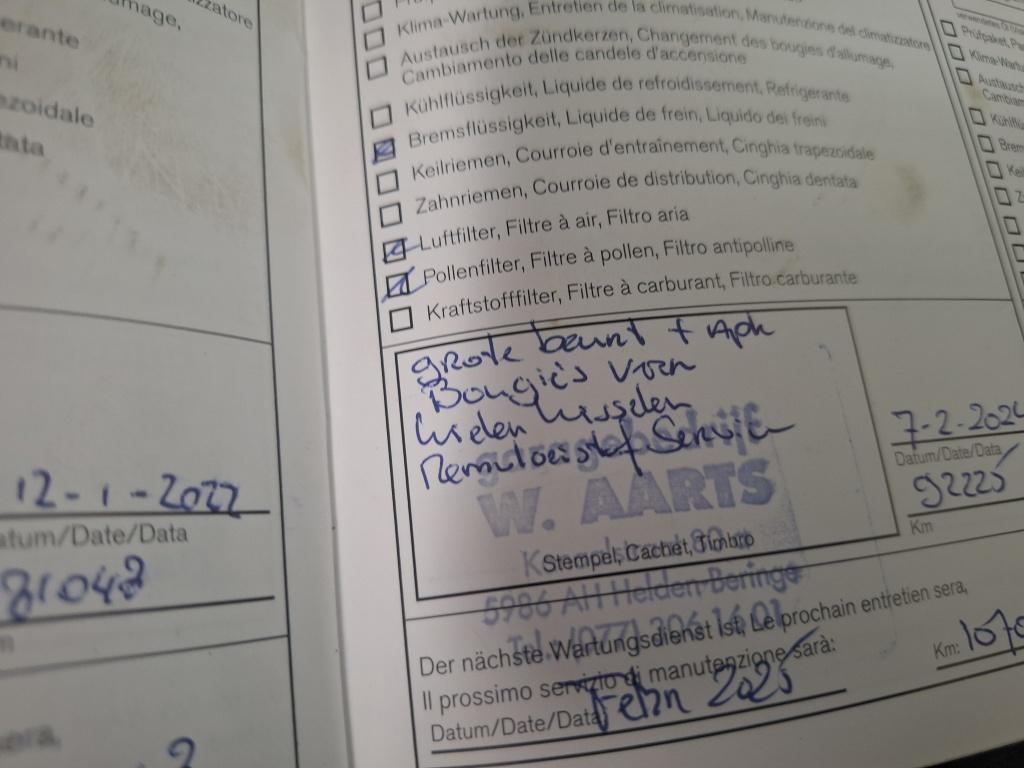 umage,
erante
ni
ezoidale
tata
12-1-2022
atum/Date/Data
81048
Klima-Wartung, Entretien de la climatisation, Manutenzione del climatizzatore
Austausch der Zündkerzen, Changement des bougies d'allumage,
Cambiamento delle candele d'accensione
Kühlflüssigkeit, Liquide de refroidissement, Refrigerante
Bremsflüssigkeit, Liquide de frein, Liquido dei freini
Keilriemen, Courroie d'entraînement, Cinghia trapezoidale
Zahnriemen, Courroie de distribution, Cinghia dentata
Luftfilter, Filtre à air, Filtro aria
Pollenfilter, Filtre à pollen, Filtro antipolline
Kraftstofffilter, Filtre à carburant, Filtro carburante
grote beurt + Apk
Bougie's voor
wielen wisselen
Remvloeistof Service
W. AARTS
Stempel, Cachet, Timbro
5986 AH Helden-Beringe
7-2-2024
Datum/Date/Data
92225
Km
Der nächste Wartungsdienst ist, Le prochain entretien sera,
Il prossimo servizio di manutenzione sarà:
Datum/Date/Data
2025
Km: 1070
Prüfpaket, Pa
Klima-Wartu
Austausch
Cambiam
Kühlflü
Brem
Kei